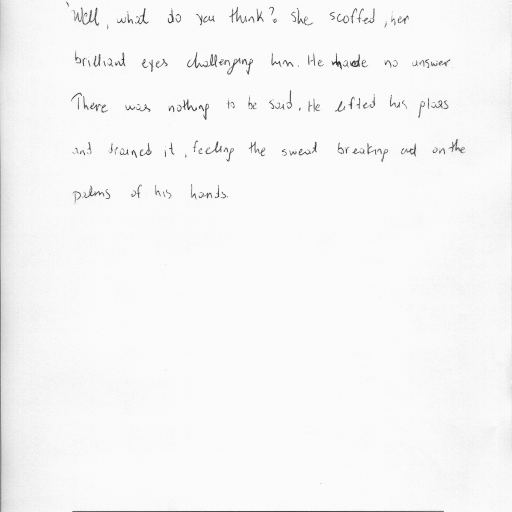 'Well, what do you think? She scoffed, her
brilliant eyes challenging him. He made no answer
There was nothing to be said. He lifted his glass
and drained it, feeling the sweat breaking out on the
palms of his hands.